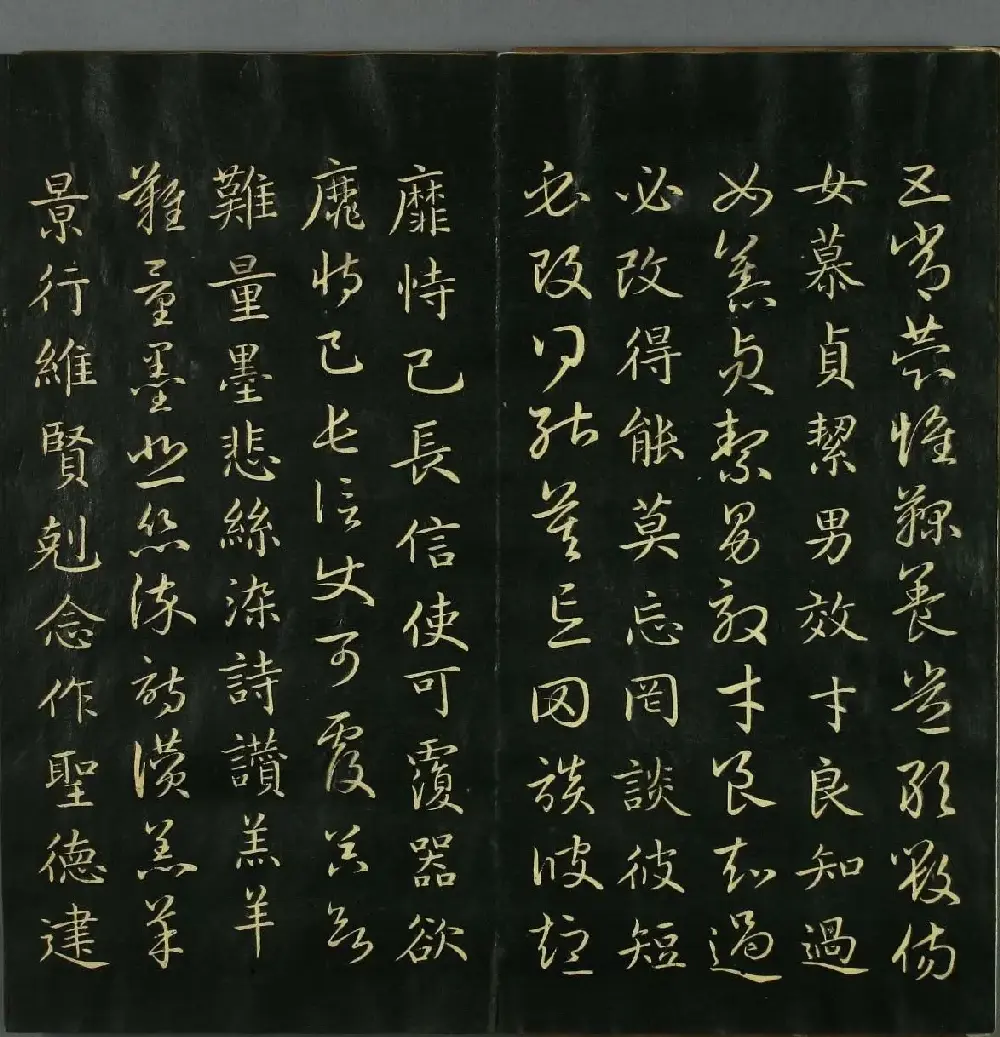 五常恭惟鞠養豈敢毀傷
女慕貞絜男效才良知過
女慕貞絜男效才良知過
必改得能莫忘罔談彼短
必改得能莫忘罔談彼短
靡恃己長信使可覆器欲
靡恃己長信使可覆器欲
難量墨悲絲染詩讚羔羊
難量墨悲絲染詩讚羔羊
景行維賢剋念作聖德建